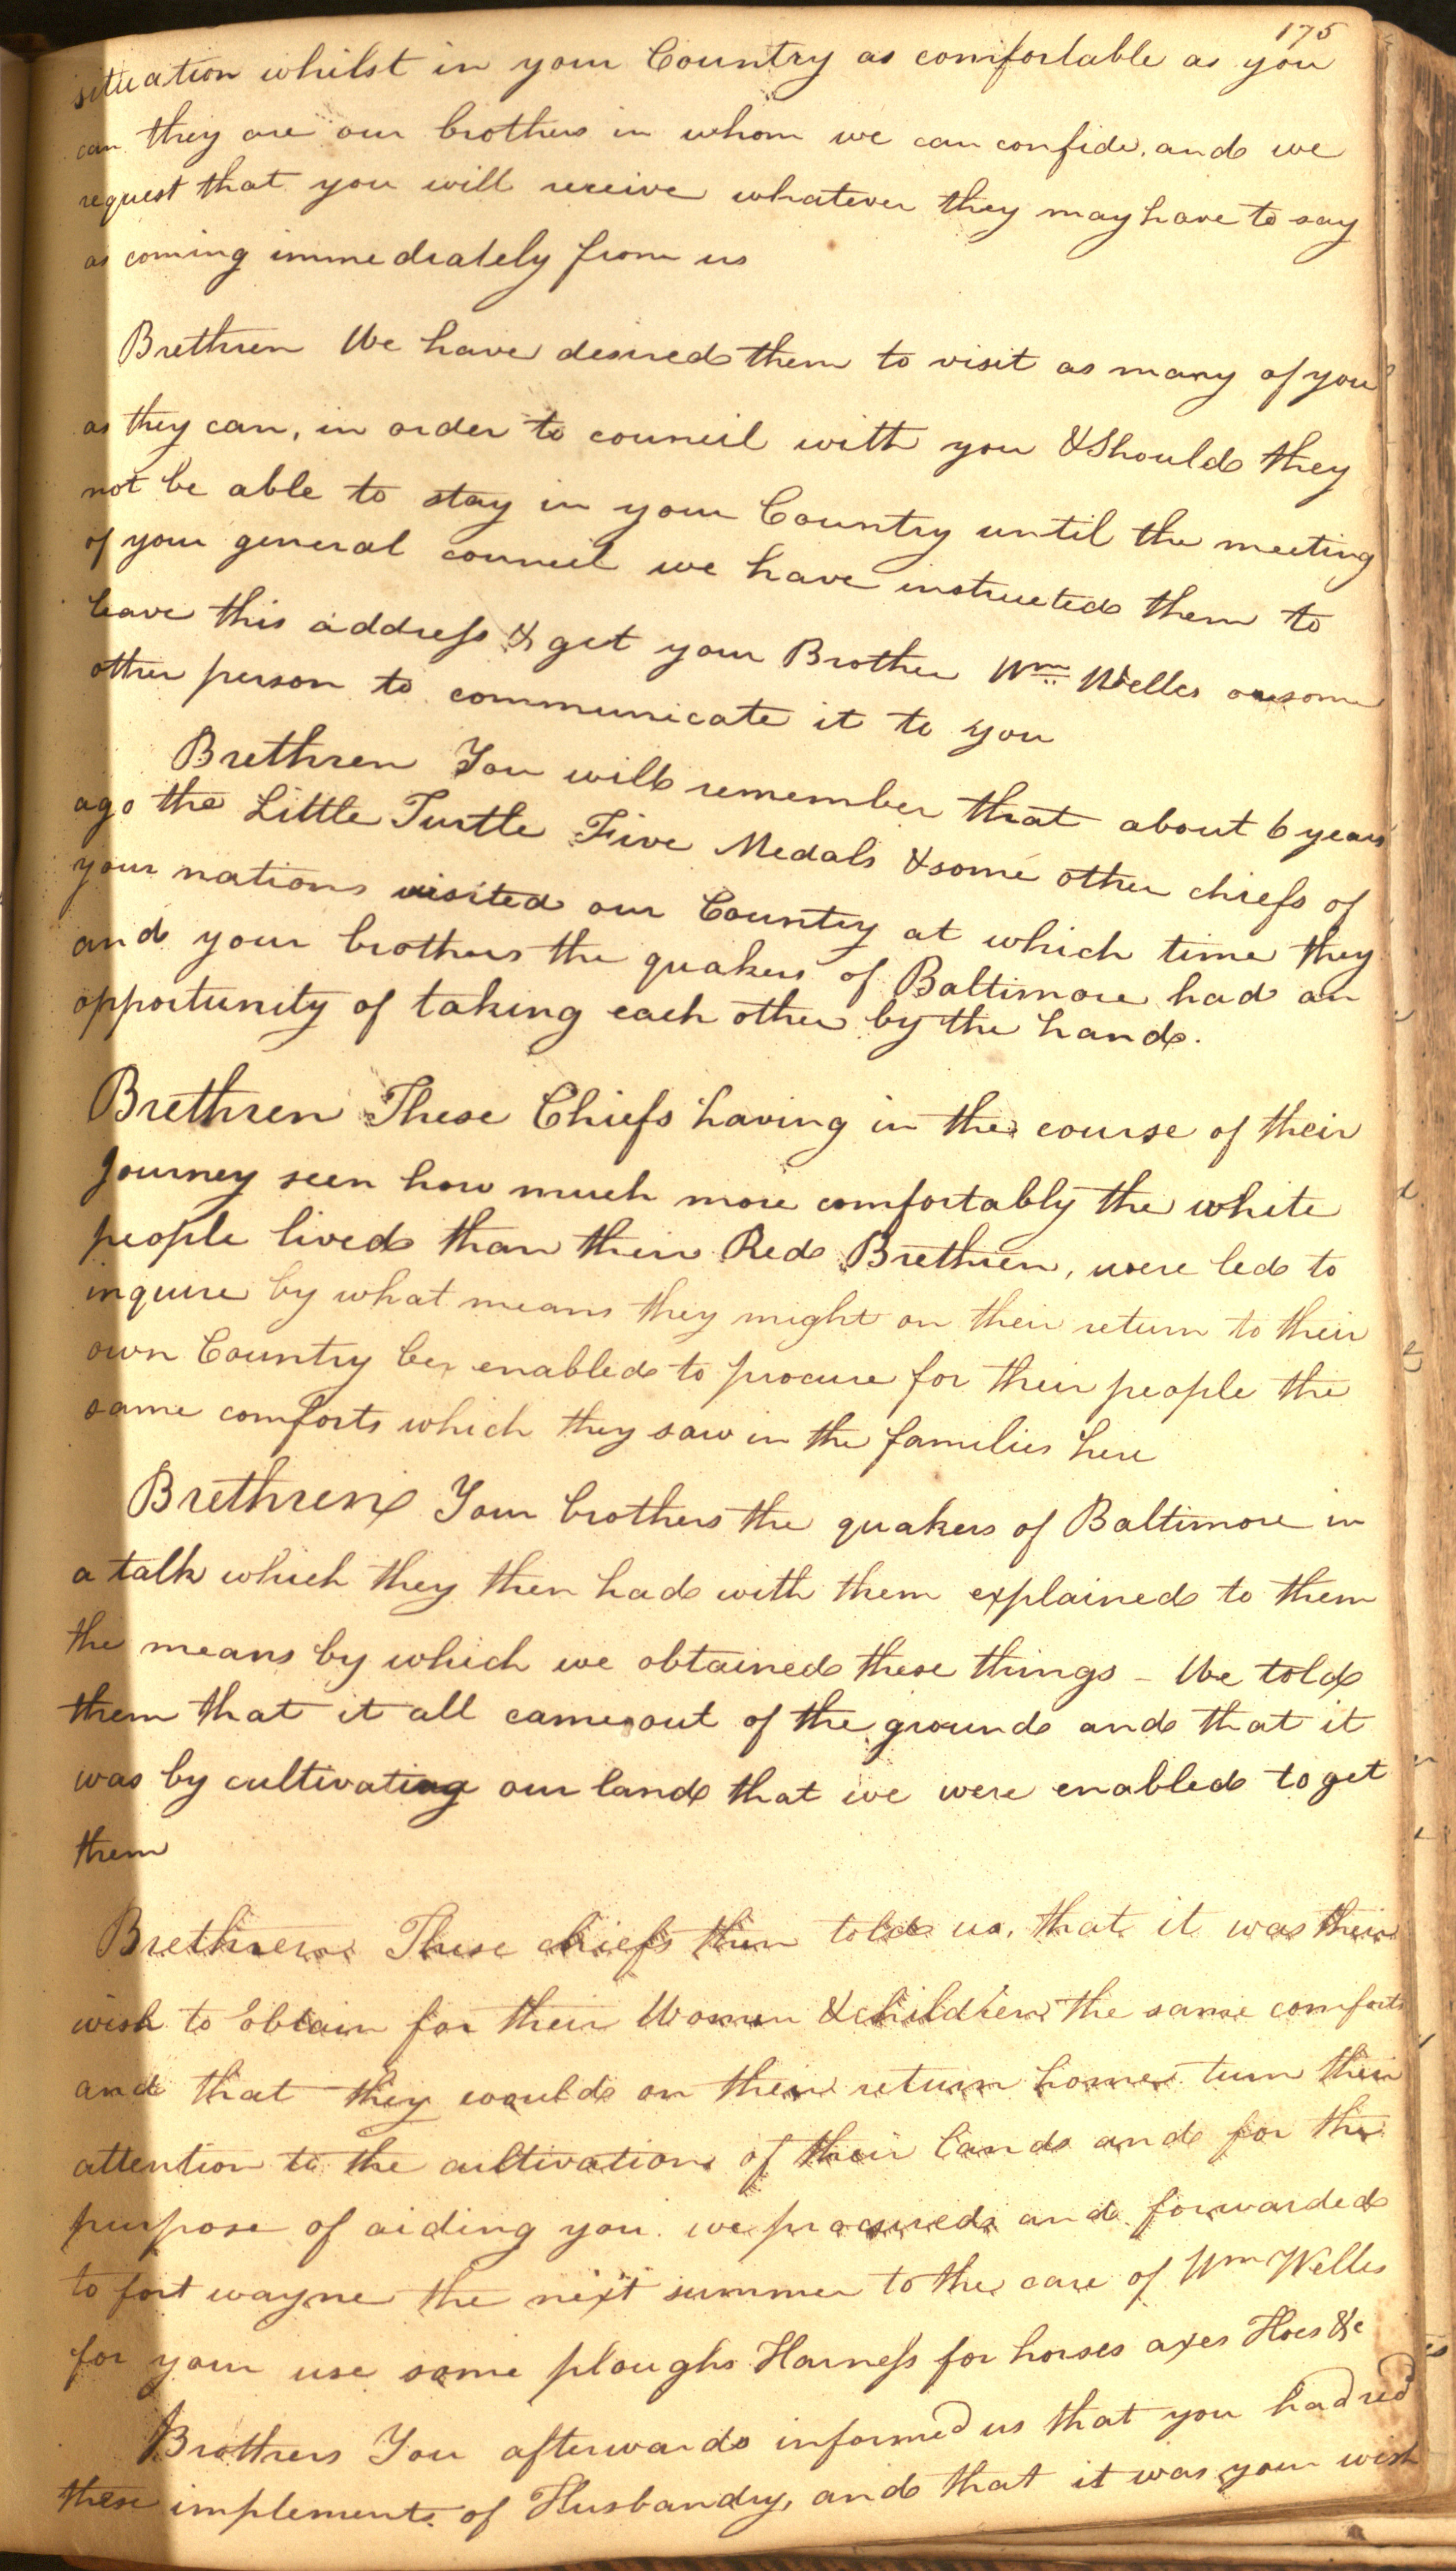 175
situation whilst in your Country as comfortable as you
can they are our brothers in whom we can confide, and we
request that you will receive whatever they may have to say
as coming immediately from us
Brethren We have desired them to visit as many of you
as they can, in order to council with you & Should they
not be able to stay in your Country until the meeting
of your general council we have instructed them to
leave this address & get your Brother Wm Welles or some
other person to communicate it to you
Brethren You will remember that about 6 years
ago the Little Turtle Five Medals & some other chiefs of
your nations visited our Country at which time they
and your brothers the quakers of Baltimore had an
opportunity of taking each other by the hand.
Brethren These Chiefs having in the course of their
Journey seen how much more comfortably the white
people lived than their Red Brethren, were led to
inquire by what means they might on their return to their
own Country be enabled to procure for their people the
same comforts which they saw in the families here
Brethren Your brothers the quakers of Baltimore in
a talk which they then had with them explained to them
the means by which we obtained these things - We told
them that it all came out of the ground and that it
was by cultivating our land that we were enabled to get
them
Brethren These chiefs then told us, that it was their
wish to obtain for their Women & children the same comforts
and that they would on their return home turn their
attention to the cultivation of their lands and for the
purpose of aiding you we procured and forwarded
to fort wayne the next summer to the care of Wm Welles
for your use some ploughs Harness for horses axes Hoes &c
Brothers You afterwards informed us that you had recd
these implements of Husbandry, and that it was your wish